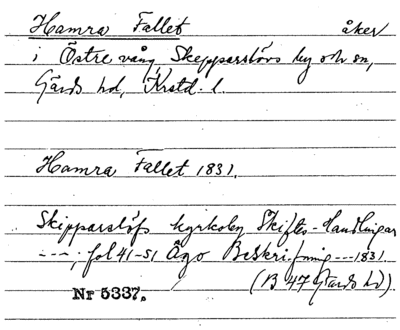 Hamra Fallet åker
i Östre vång, Skepparslövs by och sn,
Gärds hd, Krstd. l.
Hamra Fallet 1831.
Skipparslöfs kyrkoby Skiftes-Handlingar
---; fol 41-51 Ägo Beskrifning --- 1831
(B 47 Gärds hd)
Nr 5337.